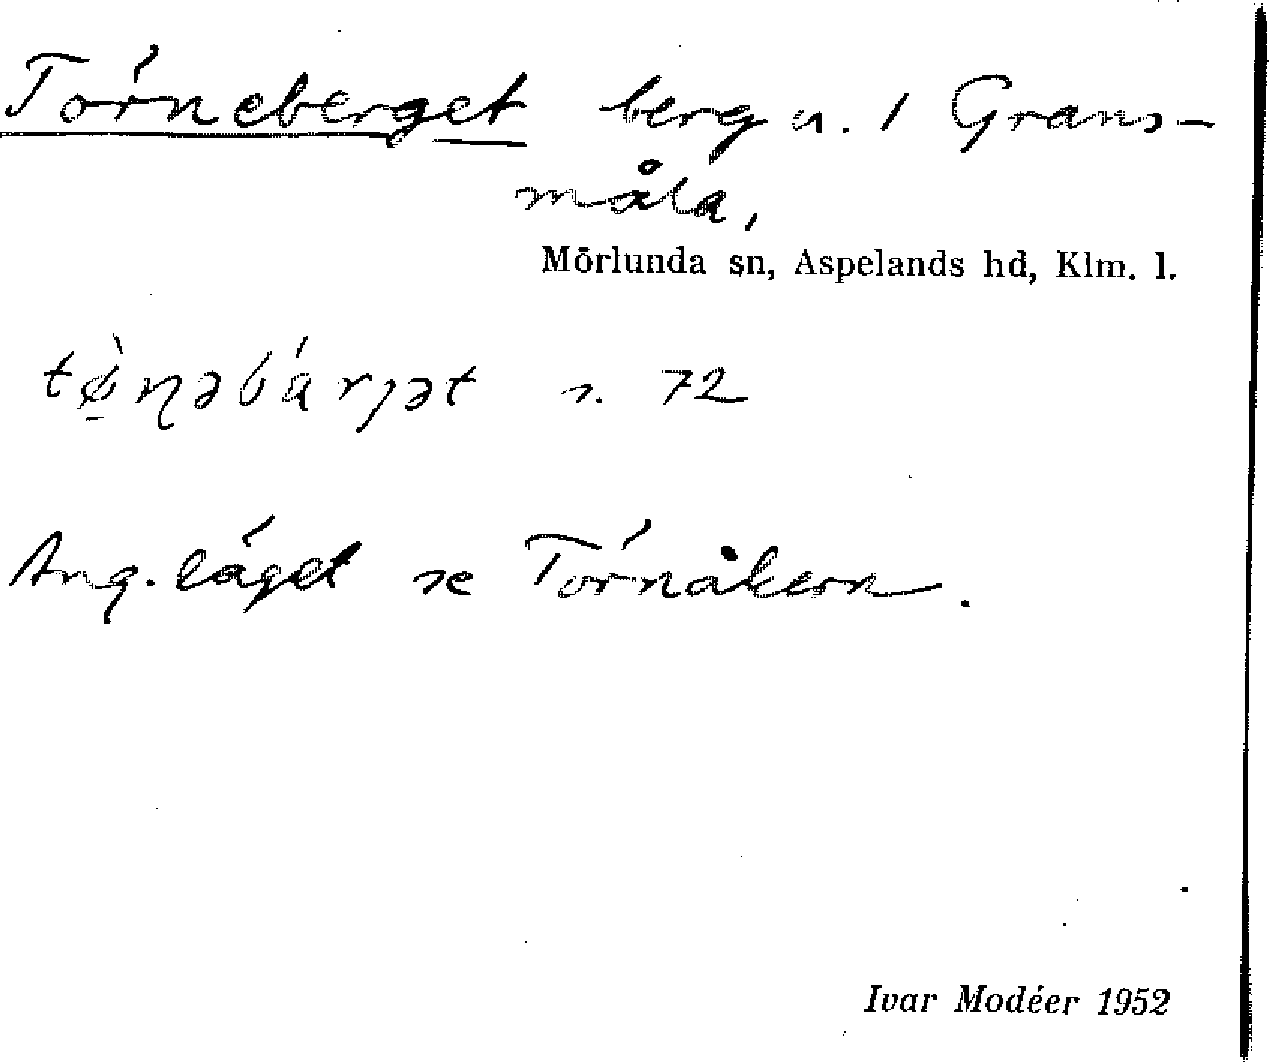 Törneberget berg u. 1 Grans-
måla,
Mörlunda sn, Aspelands hd, Klm. l.
tø̀ɳəbárjət s. 72
Ang. läget se Törnåkern.
Ivar Modéer 1952